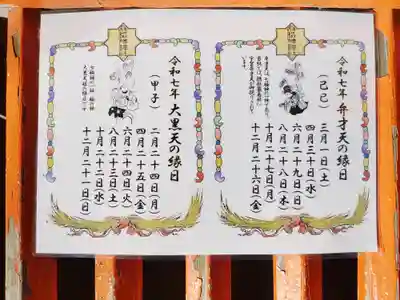 令和七年 弁才天の縁日
(己巳)
三月一日(土)
四月三十日(水)
六月二十九日(日)
八月二十八日(木)
十月二十七日(月)
十二月二十六日(金)
令和七年 大黒天の縁日
(甲子)
二月二十四日(月)
四月二十五日(金)
六月二十四日(火)
八月二十三日(土)
十月二十二日(水)
十二月二十一日(日)